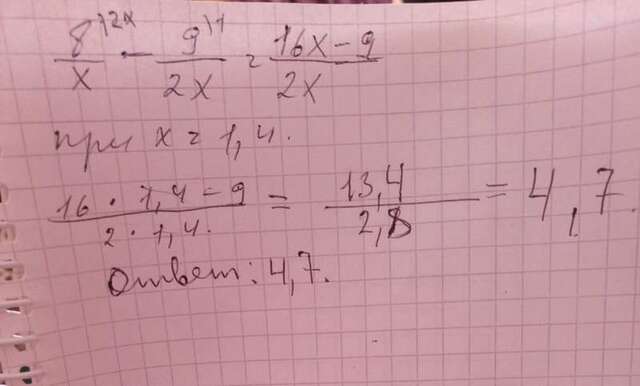 8^{\2x}/x - 9^{\1}/2x = 16x-9/2x
при x = 1,4.
16·1,4-9/2·1,4. = 13,4/2,8 = 4,7.
Ответ: 4,7.